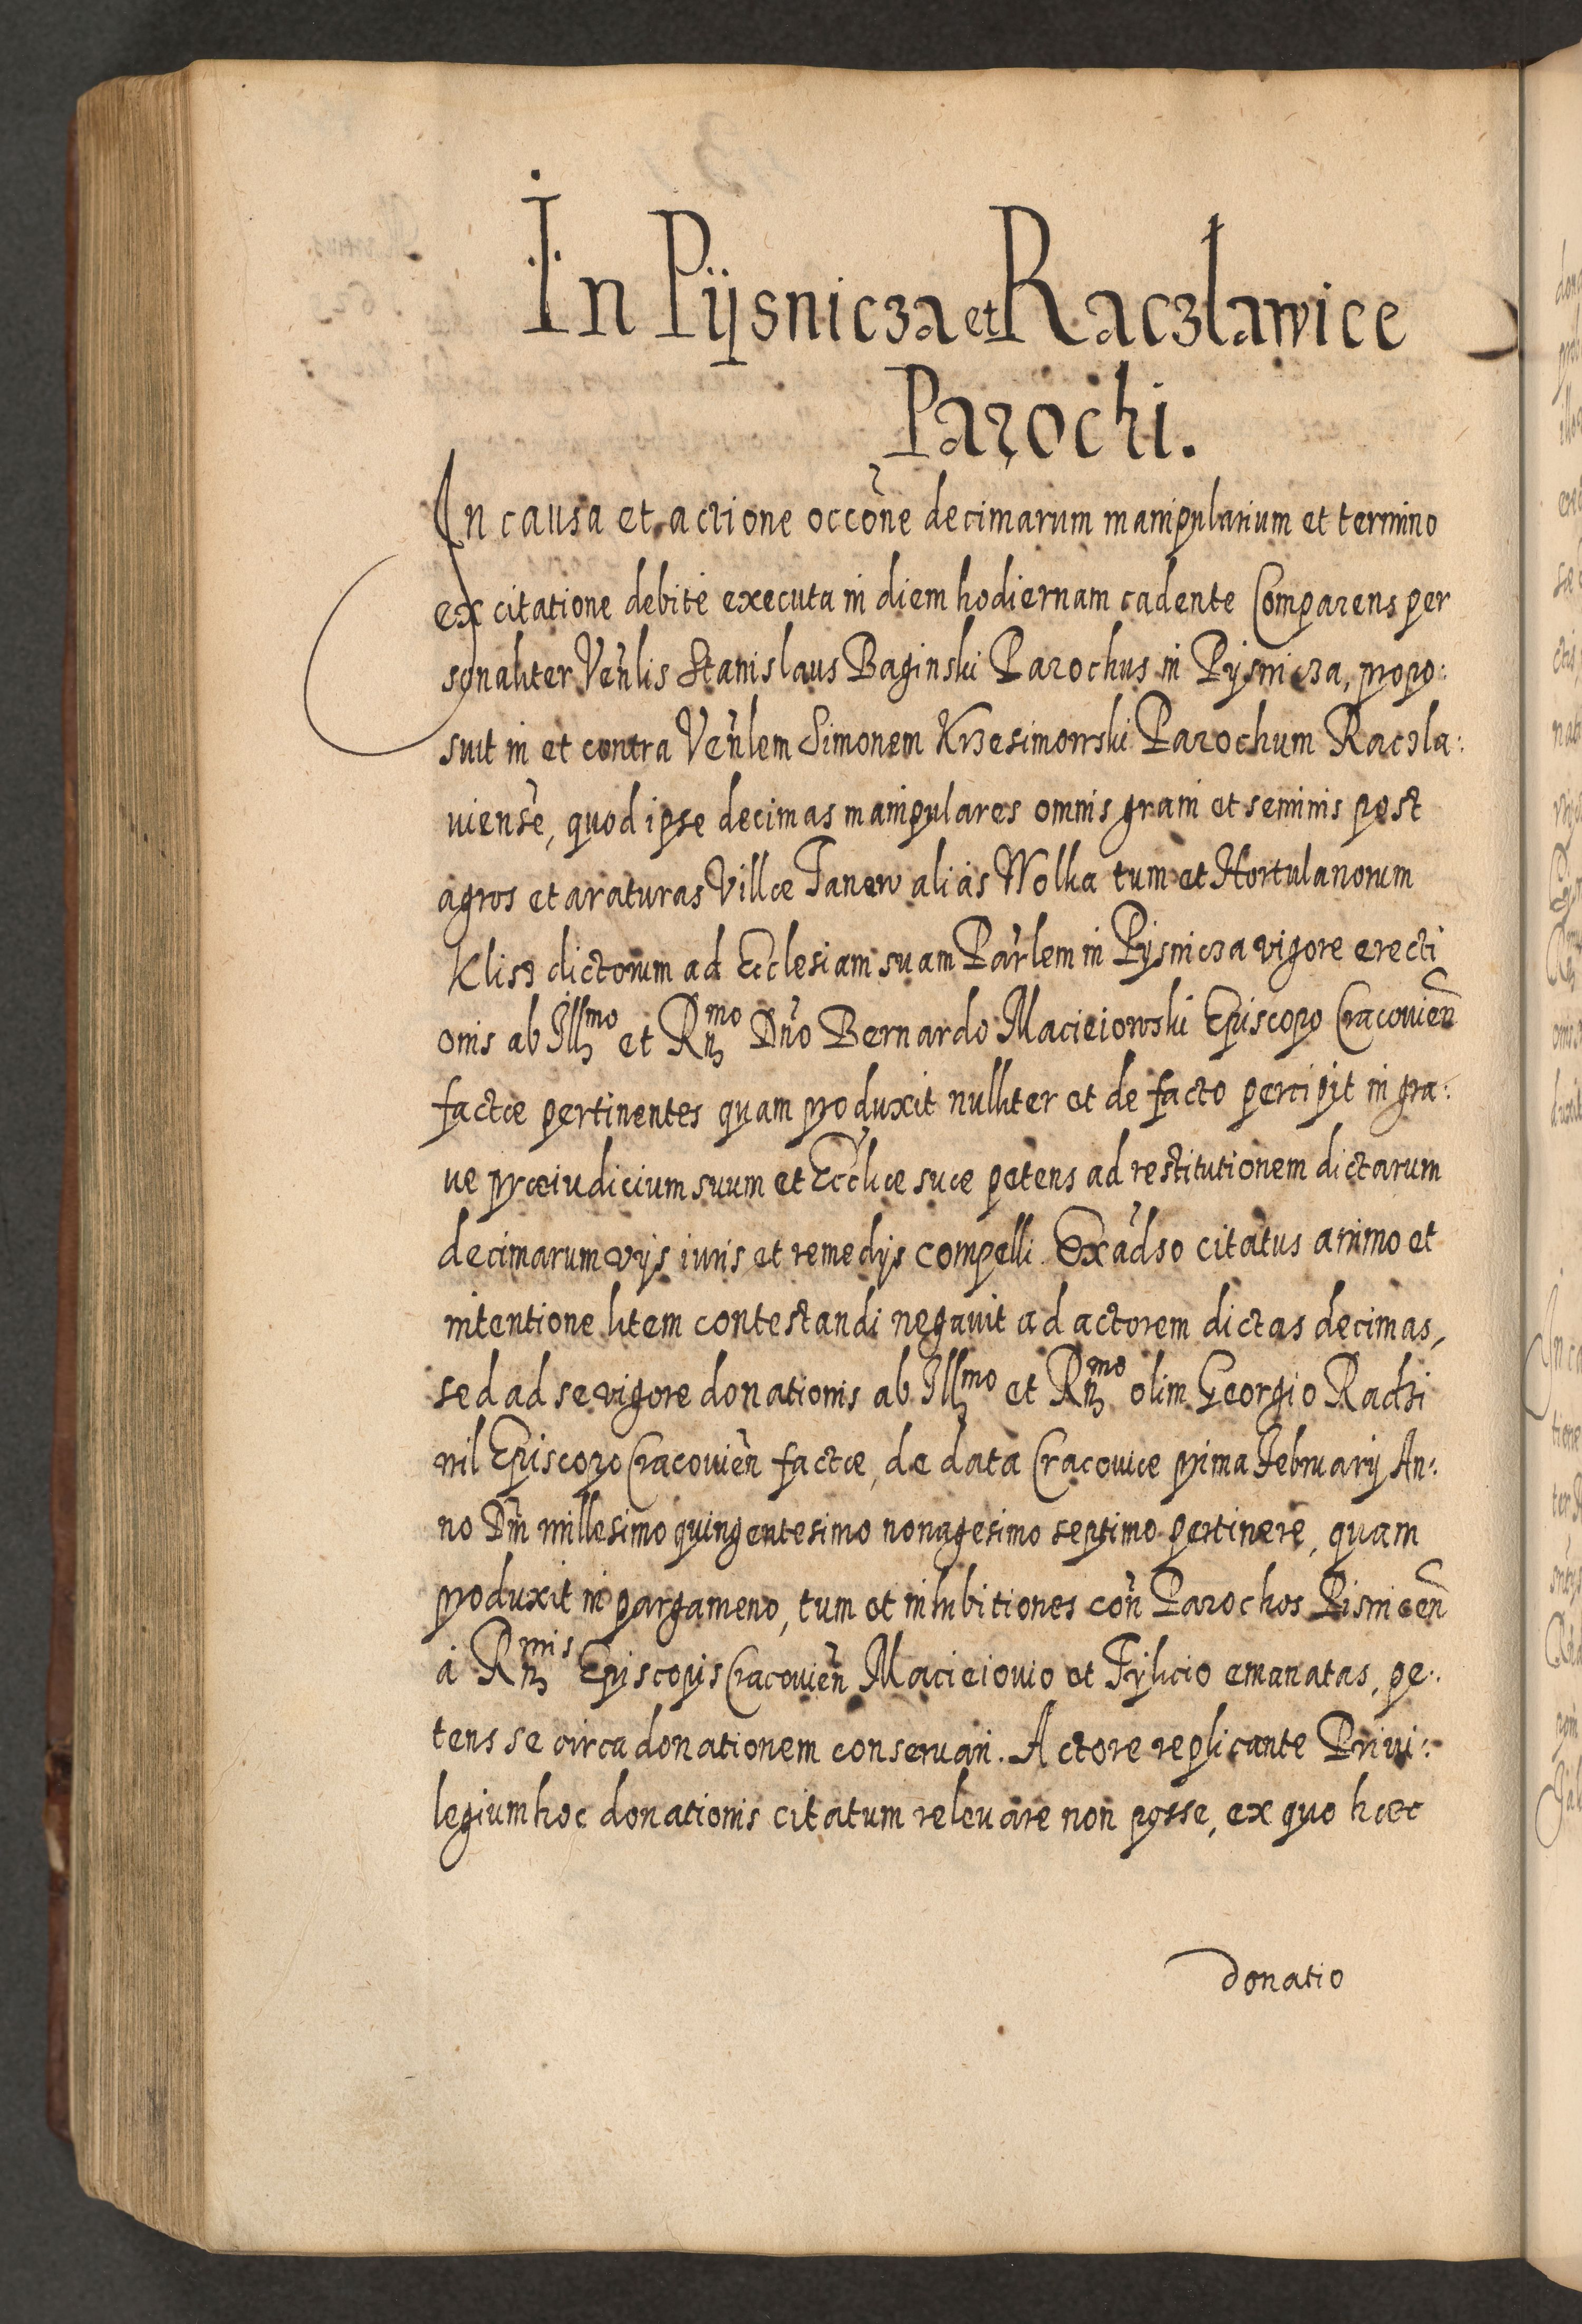 In Pÿsnicza et Raczlawice
Parochi.
In causa et actione occõne decimarum manipularium et termino
ex citatione debite executa in diem hodiernam cadente Comparens per
sonaliter Veñlis Stanislaus Baginski Parochus in Pysnicza, propo:
suit in et contra Veñlem Simonem Krzesimowski Parochum Raczla:
uiensẽ, quod ipse decimas manipulares omnis grani et seminis post
agros et araturas Villæ Tanew aliàs Wolka tum et Hortulanorum
Klisz dictorum ad Ecclesiam suam Pãrlem in Pysnicza vigore erecti
onis ab Illmo et Rmo Dño Bernardo Macieiowski Episcopo Cracouieñ
factæ pertinentes quam produxit nulliter et de facto percipit in gra:
ue præiudicium suum et Ecc̃liæ suæ petens ad restitutionem dictarum
decimarum vijs iuris et remedijs compelli. Ex ad̃so citatus animo et
intentione litem contestandi negauit ad actorem dictas decimas,
sed ad se vigore donationis ab Illmo et Rmo olim Georgio Radzi
uil Episcopo Cracouieñ factæ, de data Cracouiæ prima February An:
no Dñi millesimo quingentesimo nonagesimo septimo pertinere, quam
produxit in pargameno, tum et inhibitiones coñ Parochos Pisniceñ
à Rmis Episcopis Cracouieñ Macieiouio et Tylicio emanatas, pe:
tens se circa donationem conseruari. Actore replicante Priui:
legium hoc donationis citatum releuare non posse, ex quo hæc
donatio